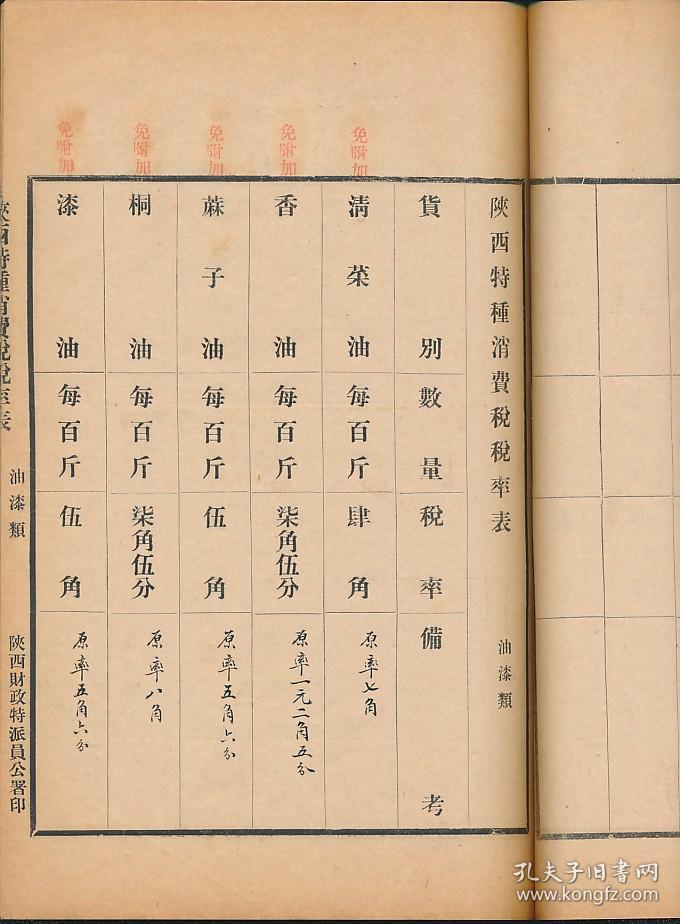 陝西特種消費稅稅率表 油漆類
貨別 數量 稅率 備考
免附加
清菜油 每百斤 肆角 原率七角
免附加
香油 每百斤 柒角伍分 原率一元二角五分
免附加
蔴子油 每百斤 伍角 原率五角六分
免附加
桐油 每百斤 柒角伍分 原率八角
免附加
漆油 每百斤 伍角 原率五角六分
陝西特種消費稅稅率表 油漆類 陝西財政特派員公署印
孔夫子旧书网
www.kongfz.com